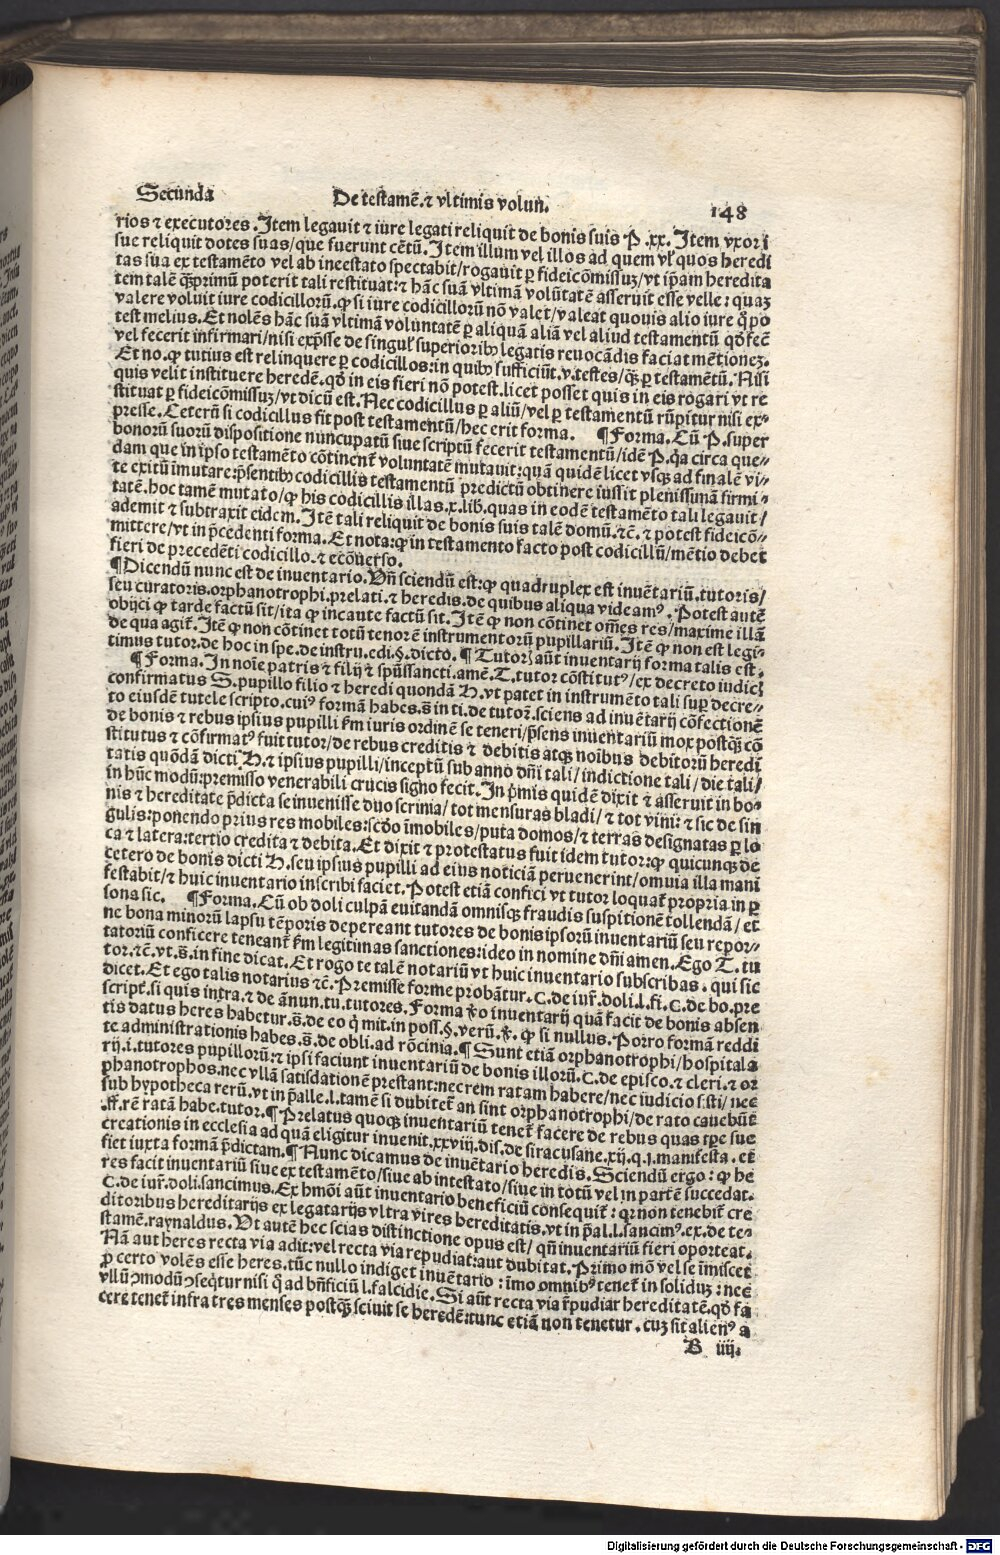 Secunda De testamē. ⁊ vltimis volun. 148
rios ⁊ executores. Item legauit ⁊ iure legati reliquit de bonis suis P .xx. Item vxori
sue reliquit dotes suas/que fuerunt cētū. Item illum vel illos ad quem vľ quos heredi
tas sua ex testamēto vel ab intestato spectabit/rogauit ꝑ fideicōmissuꝫ/vt ip̄am heredita
tem talē q̄ꝫprimū poterit tali restituat: ⁊ hāc suā vltimā volūtatē asseruit esse velle: quaꝫ
valere voluit iure codicillorū. ꝙ si iure codicillorū nō valet/valeat quouis alio iure q̄ po
test melius. Et nolēs hāc suā vltimā voluntatē ꝑ aliquā aliā vel aliud testamentū qd̄ fec̄
vel fecerit infirmari/nisi exp̄sse de singuľ superioribꝰ legatis reuocādis faciat mētioneꝫ.
Et no. ꝙ tutius est relinquere ꝑ codicillos: in quibꝰ sufficiūt .v. testes/q̄ꝫ ꝑ testamētū. Nisi
quis velit instituere heredē. qd̄ in eis fieri nō potest. licet posset quis in eis rogari vt re
stituat ꝑ fideicōmissuꝫ/vt dicū est. Nec codicillus ꝑ aliū/vel ꝑ testamentū rūpitur nisi ex⸗
presse. Ceterū si codicillus fit post testamentū/hec erit forma. ¶ Forma. Cū P. super
bonorū suorū dispositione nuncupatū siue scriptū fecerit testamentū/idē P. q̄a circa que⸗
dam que in ipso testamēto cōtinent̄ voluntatē mutauit: quā quidē licet vsqꝫ ad finalē vi⸗
te exitū imutare: p̄sentibꝰ codicillis testamentū predictū obtinere iussit plenissimā firmi⸗
tatē. hoc tamē mutato/ꝙ his codicillis illas .x. lib. quas in eodē testamēto tali legauit/
ademit ⁊ subtraxit eidem. Itē tali reliquit de bonis suis talē domū. ⁊c̄. ⁊ potest fideicō⸗
mittere/vt in p̄cedenti forma. Et nota: ꝙ in testamento facto post codicillū/mētio debet
fieri de precedēti codicillo. ⁊ ecōuerso.
¶ Dicendū nunc est de inuentario. Vn̄ sciendū est: ꝙ quadruplex est inuētariū. tutoris/
seu curatoris. orphanotrophi. prelati. ⁊ heredis. de quibus aliqua videamꝰ. Potest autē
obijci ꝙ tarde factū sit/ita ꝙ incaute factū sit. Itē ꝙ non cōtinet om̄es res/maxime illā
de qua agit̄. Itē ꝙ non cōtinet totū tenorē instrumentorū pupillariū. Itē ꝙ non est legi⸗
timus tutor. de hoc in spe. de instru. edi. §. dicto. ¶ Tutorꝭ aūt inuentarij forma talis est.
¶ Forma. In noīe patris ⁊ filij ⁊ spūssancti. amē. T. tutor cōstitutꝰ/ex decreto iudicꝭ
confirmatus S. pupillo filio ⁊ heredi quondā H. vt patet in instrumēto tali suꝑ decre⸗
to eiusdē tutele scripto. cuiꝰ formā habes. s̄ in ti. de tutor. sciens ad inuētarij cōfectionē
de bonis ⁊ rebus ipsius pupilli fm̄ iuris ordinē se teneri/p̄sens inuentariū mox postq̄ꝫ cō
stitutus ⁊ cōfirmatꝰ fuit tutor/de rebus creditis ⁊ debitis atqꝫ noībus debitorū heredi
tatis quōdā dicti H. ⁊ ipsius pupilli/inceptū sub anno dn̄i tali/indictione tali/die tali/
in hūc modū: premisso venerabili crucis signo fecit. In p̄mis quidē dixit ⁊ asseruit in bo⸗
nis ⁊ hereditate p̄dicta se inuenisse duo scrinia/tot mensuras bladi/⁊ tot vini: ⁊ sic de sin
gulis: ponendo prius res mobiles: scd̄o īmobiles/puta domos/⁊ terras designatas ꝑ lo
ca ⁊ latera: tertio credita ⁊ debita. Et dixit ⁊ protestatus fuit idem tutor: ꝙ quicunqꝫ de
cetero de bonis dicti H. seu ipsius pupilli ad eius noticiā peruenerint/omuia illa mani
festabit/⁊ huic inuentario inscribi faciet. Potest etiā confici vt tutor loquat̄ propria in ꝑ
sona sic. ¶ Forma. Cū ob doli culpā euitandā omnisqꝫ fraudis suspitionē tollendā/et
ne bona minorū lapsu tēporis depereant tutores de bonis ipsorū inuentariū seu repor⸗
tatoriū conficere teneant̄ fm̄ legitimas sanctiones: ideo in nomine dn̄i amen. Ego T. tu
tor. ⁊c̄. vt. s̄. in fine dicat. Et rogo te talē notariū vt huic inuentario subscribas. qui sic
dicet. Et ego talis notarius ⁊c̄. Premisse forme probātur. C. de iur̄. doli. l. fi. C. de bo. pre
script̄. si quis intra. ⁊ de ānun. tu. tutores. Forma v̄o inuentarij quā facit de bonis absen
tis datus heres habetur. s̄. de eo q̄ mit. in poss. §. verū. v̄. ꝙ si nullus. Porro formā reddi
te administrationis habes. s̄. de obli. ad rōcinia. ¶ Sunt etiā orphanotrophi/hospitala
rij .i. tutores pupillorū: ⁊ ipsi faciunt inuentariū de bonis illorū. C. de episco. ⁊ cleri. ⁊ or
phanotrophos. nec vllā satisdationē prestant: nec rem ratam habere/nec iudicio s̄sti/nec
sub hypotheca rerū. vt in p̄alle. l. tamē si dubitet̄ an sint orphanotrophi/de rato cauebūt
.ff. rē ratā habe. tutor. ¶ Prelatus quoqꝫ inuentariū tenet̄ facere de rebus quas tp̄e sue
creationis in ecclesia ad quā eligitur inuenit. xxviij. dis. de siracusane. xij. q. j. manifesta. et
fiet iuxta formā p̄dictam. ¶ Nunc dicamus de inuētario heredis. Sciendū ergo: ꝙ he
res facit inuentariū siue ex testamēto/siue ab intestato/siue in totū vel in partē succedat.
C. de iur̄. doli. sancimus. Ex hm̄oi aūt inuentario beneficiū consequit̄: qꝛ non tenebit̄ cre
ditoribus hereditarijs ex legatarijs vltra vires hereditatis. vt in p̄al. l. sancimꝰ. ex. de te⸗
stamē. raynaldus. Vt autē hec scias distinctione opus est/ qn̄ inuentariū fieri oporteat.
Nā aut heres recta via adit: vel recta via repudiat: aut dubitat. Primo mō vel se īmiscet
ꝓ certo volēs esse heres. tūc nullo indiget inuētario: īmo omnibꝰ tenet̄ in soliduꝫ: nec
vllū ꝯmodū ꝯseq̄tur nisi q̄ ad bn̄ficiū l. falcidie. Si aūt recta via r̄pudiar hereditatē. qd̄ fa
cere tenet̄ infra tres menses postq̄ꝫ sciuit se heredē: tunc etiā non tenetur. cuꝫ sit alienꝰ a
B iiij.
Digitalisierung gefördert durch die Deutsche Forschungsgemeinschaft - DFG